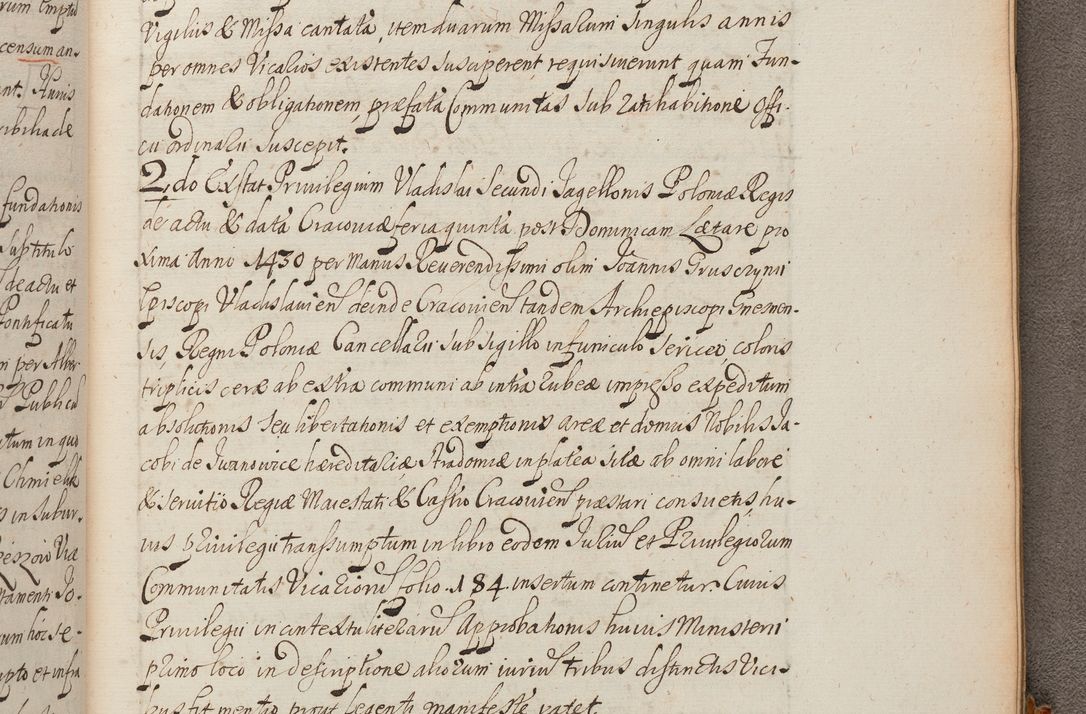 rum Impttu
censum an-
nt. Huius
ribilia de
fundationis
substitulo
de actu et
Pontificatu
m per Alber
Public
utum in quo
Chmielik
s in Subur.
Via
tamenti Jo-
rum hoc se-
upto et infra
Vigilijs & Missa cantata, item duarum Missarum singulis annis
per omnes Vicarios existentes susciperent requisiverunt quam Fun-
dationem & obligationem, præfata Communitas sub ratihabitione Offi-
cii ordinarii suscepit.
2.do Exstat Privilegium Vladislai Secundi Jagellonis Poloniæ Regis
de actu & data Cracoviæ feria quinta post Dominicam Lætare pro
xima Anno 1430 per Manus Reverendissimi olim Joannis Gruszczynii
Episcopi Vladislavien deinde Cracovien tandem Archiepiscopi Gnesnen-
sis, Regni Poloniæ Cancellarii sub sigillo in funiculo sericeo coloris
triplicis ceræ ab extra communi ab intra rubeæ impresso expeditum
absolutionis seu libertationis et exemptionis areæ et domus Nobilis Ja-
cobi de Iwanowice hæreditariæ Stradomiæ in platea sitæ ab omni labore
& servitio Regiæ Maiestati & Castro Cracovien præstari consuetis, hu-
ius privilegii transsumptum in libro eodem Iurium et Privilegiorum
Communitatis Vicariorum folio 184 insertum continetur. Cuius
Privilegii in contextu literarum Approbationis huius Ministerii
primo loco in descriptione aliorum iurium tribus distinctis Vici-
bus fit mentio prout legenti manifeste patet.